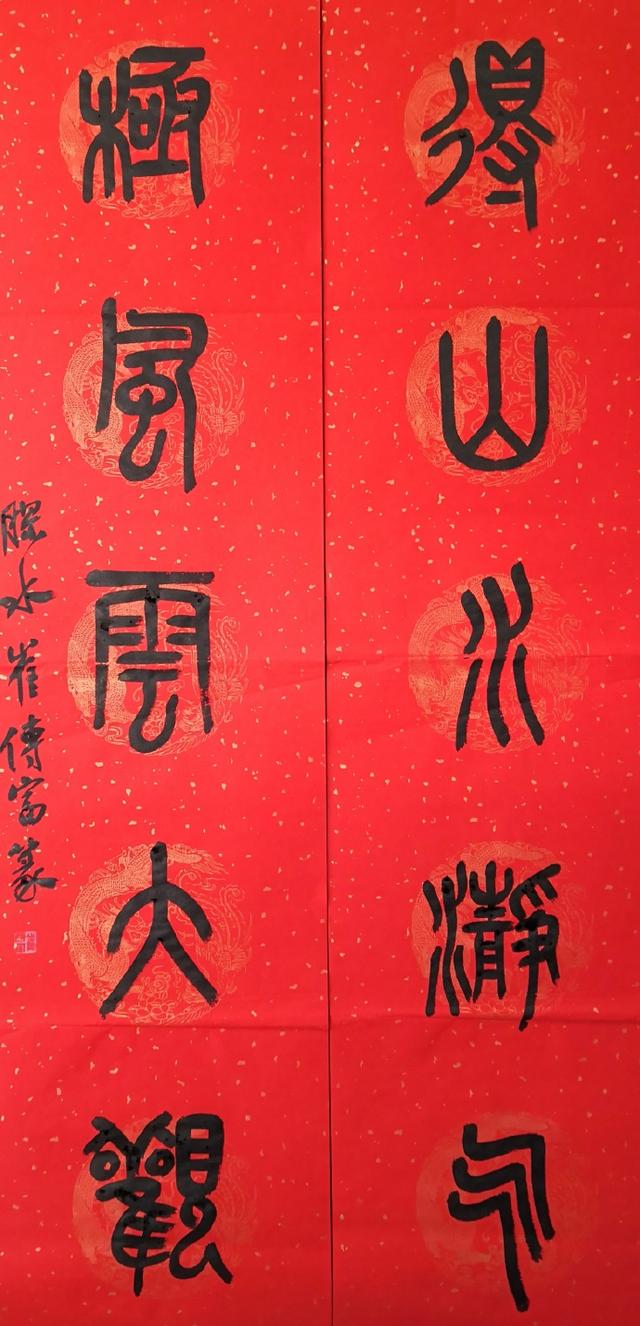 得山水瀞气
極風雲大觀
膠水崔傳富篆